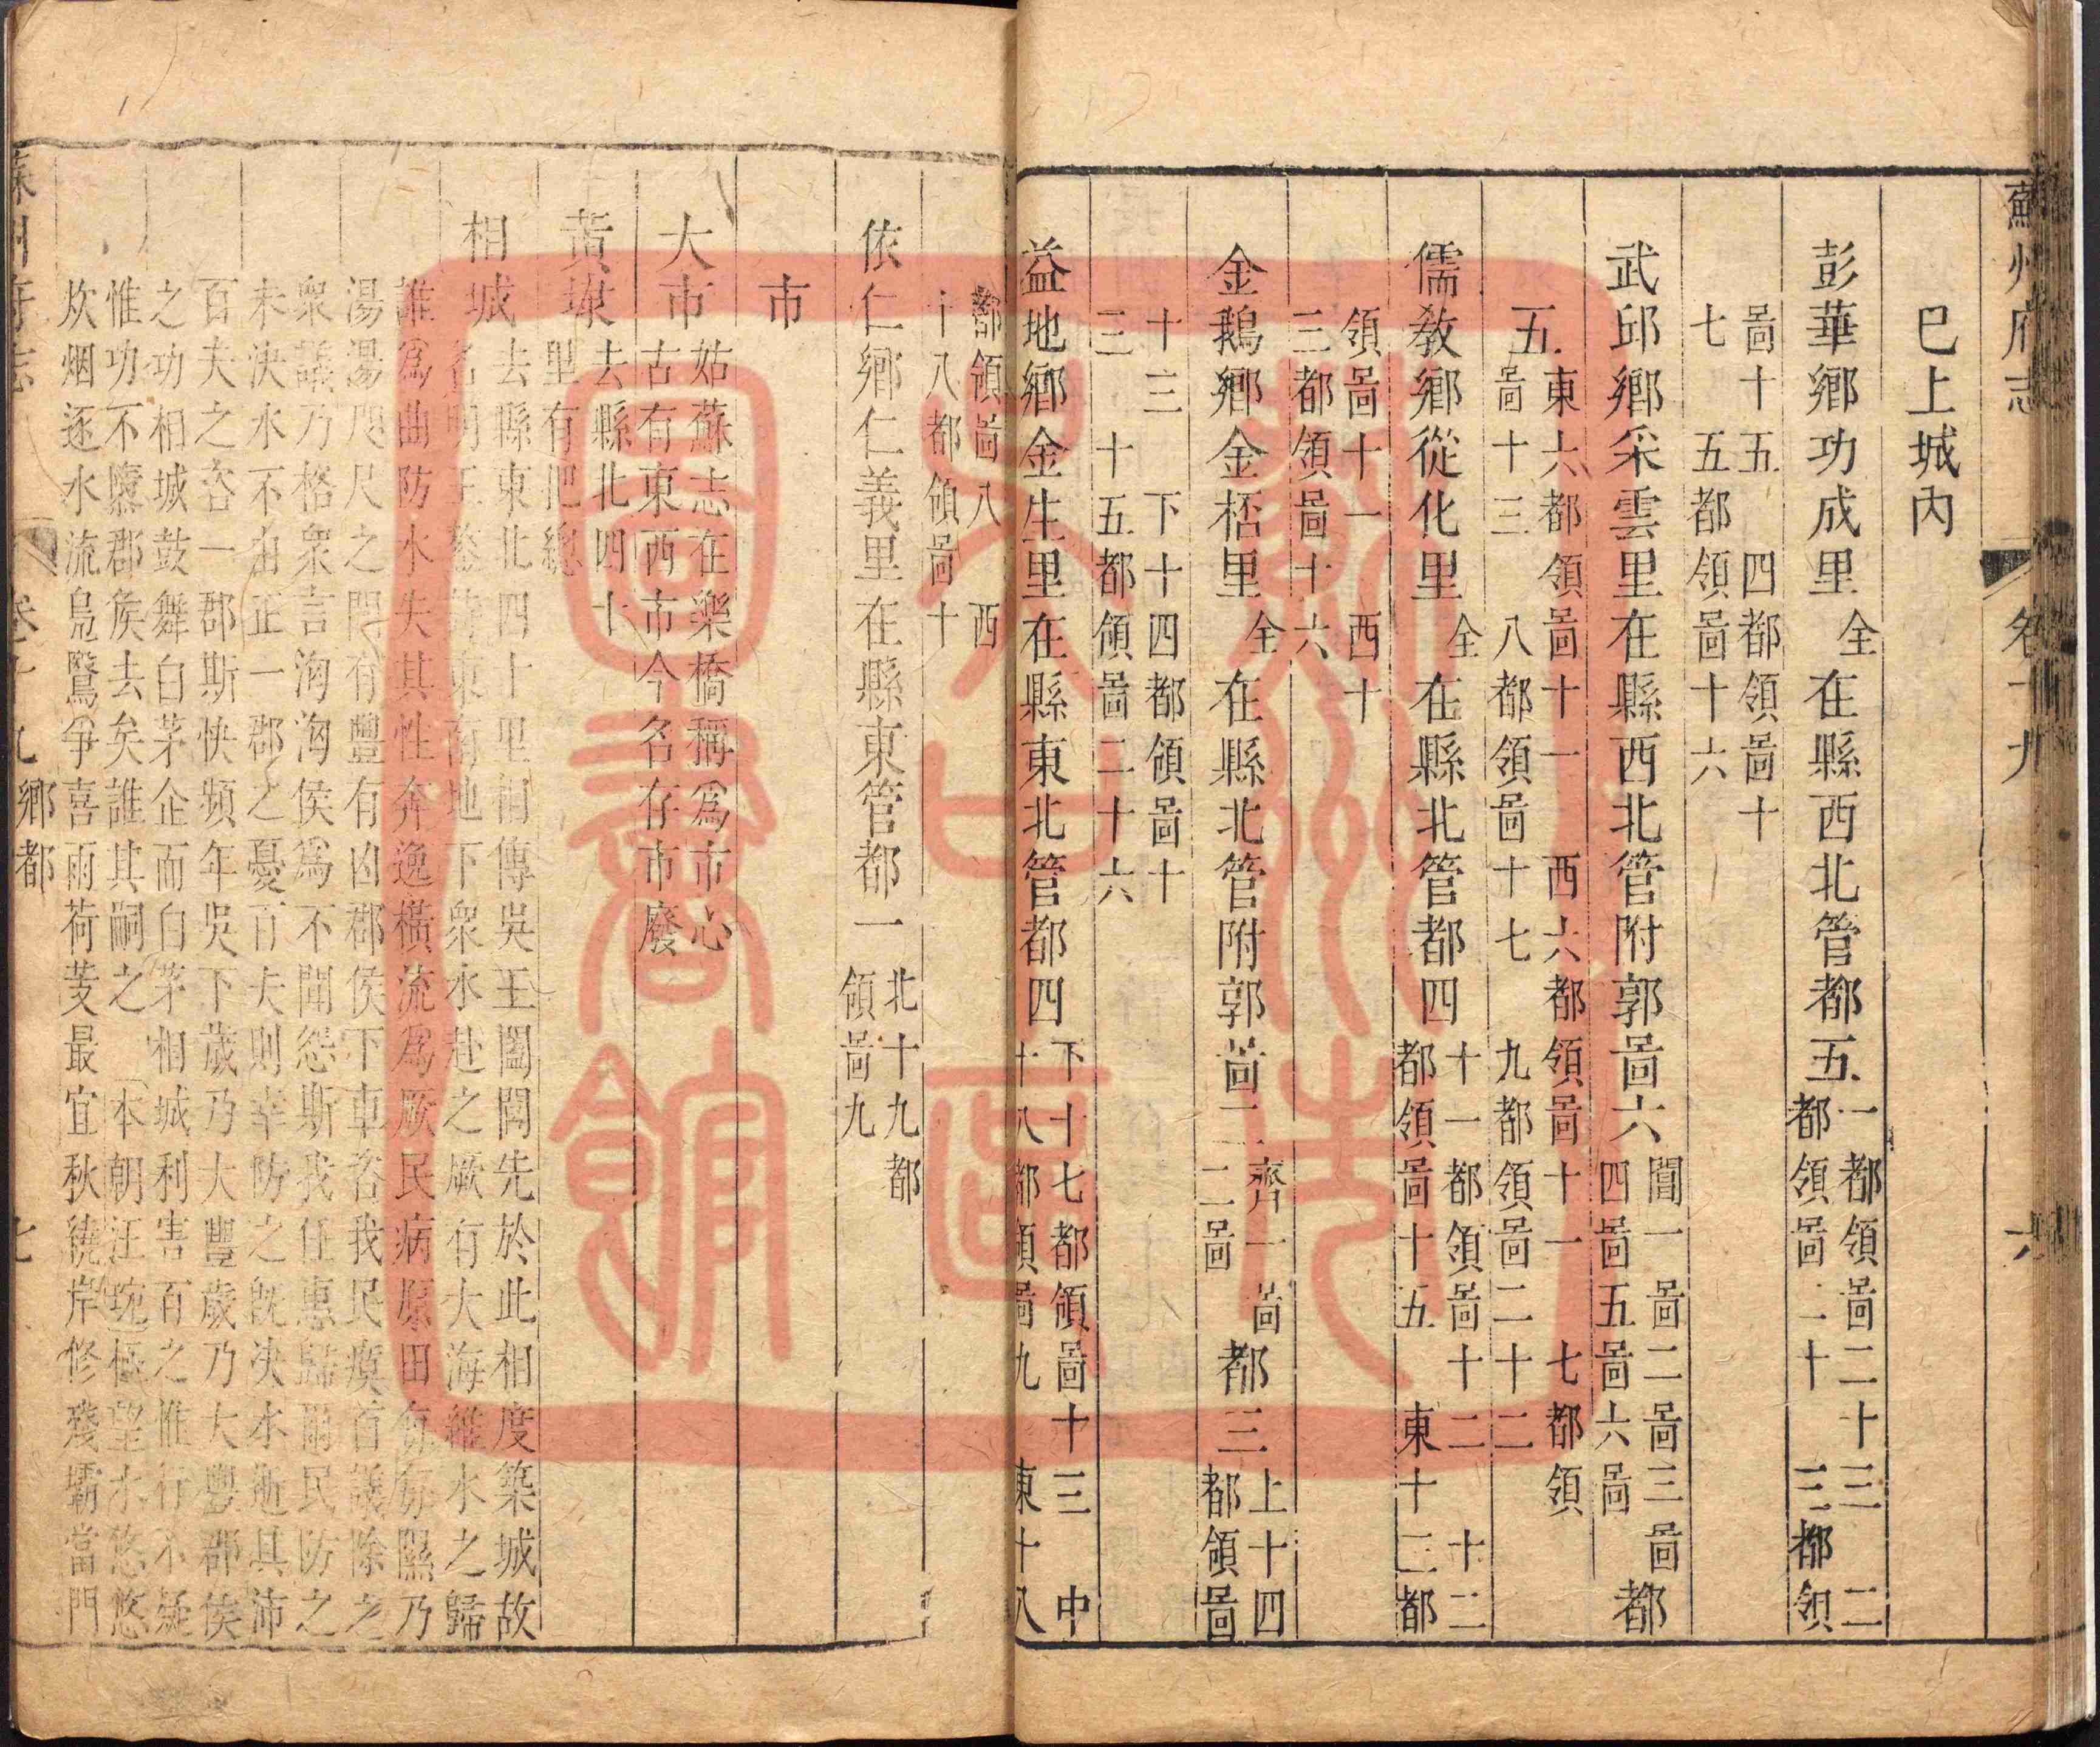 蘇州府志 卷十九 六
巳上城内
彭華鄉功成里全在縣西北管都五一都領啚二十三 二
都領啚二十 三都領
啚十五 四都領啚十
七 五都領啚十六
武邱鄉采雲里在縣西北管附郭啚六閶一啚二啚三啚
四啚五啚六啚都
五東六都領啚十一 西六都領啚十一 七都領
啚十三 八都領啚十七 九都領啚二十二
儒教鄉從化里全在縣北管都四十一都領啚十二 十二
都領啚十五 東十二都
領啚十一 西十
三都領啚十六
金鵝鄉金桮里全在縣北管附郭啚二齊一啚
二啚都三上十四
都領啚
十三 下十四都領啚十
三 十五都領啚二十六
益地鄉金生里在縣東北管都四下十七都領啚十三 中
十八都領啚九 東十八
都領啚八 西
十八都領啚十
依仁鄉仁義里在縣東管都一北十九都
領啚九
市
大市姑蘇志在樂橋稱爲市心
古有東西市今名存市廢
黃埭去縣北四十
里有把總
相城去縣東北四十里相傳吳王闔閭先於此相度築城故
名明王鏊 東南地下衆水赴之厥有大海維水之歸
誰爲曲防水失其性奔逸橫流爲厥民病原田每每隰乃
湯湯咫尺之間有豐有凶郡侯下車咨我民瘼首議除之
衆議乃格衆言洶洶侯爲不聞怨斯我任惠歸爾民防之
未決水不由正一郡之憂百夫則幸防之既決水逝其沛
百夫之咨一郡斯快頻年吳下歲乃大豐歲乃大豐郡侯
之功相城鼓舞白茅企而白茅相城利害百之惟行不疑
惟功不隳郡侯去矣誰其嗣之 本朝汪琬 望水悠悠
炊烟逐水流鳧鷖爭喜雨荷芰最宜秋繞岸修殘壩當門
蘇州府志 卷十九 鄉都 七